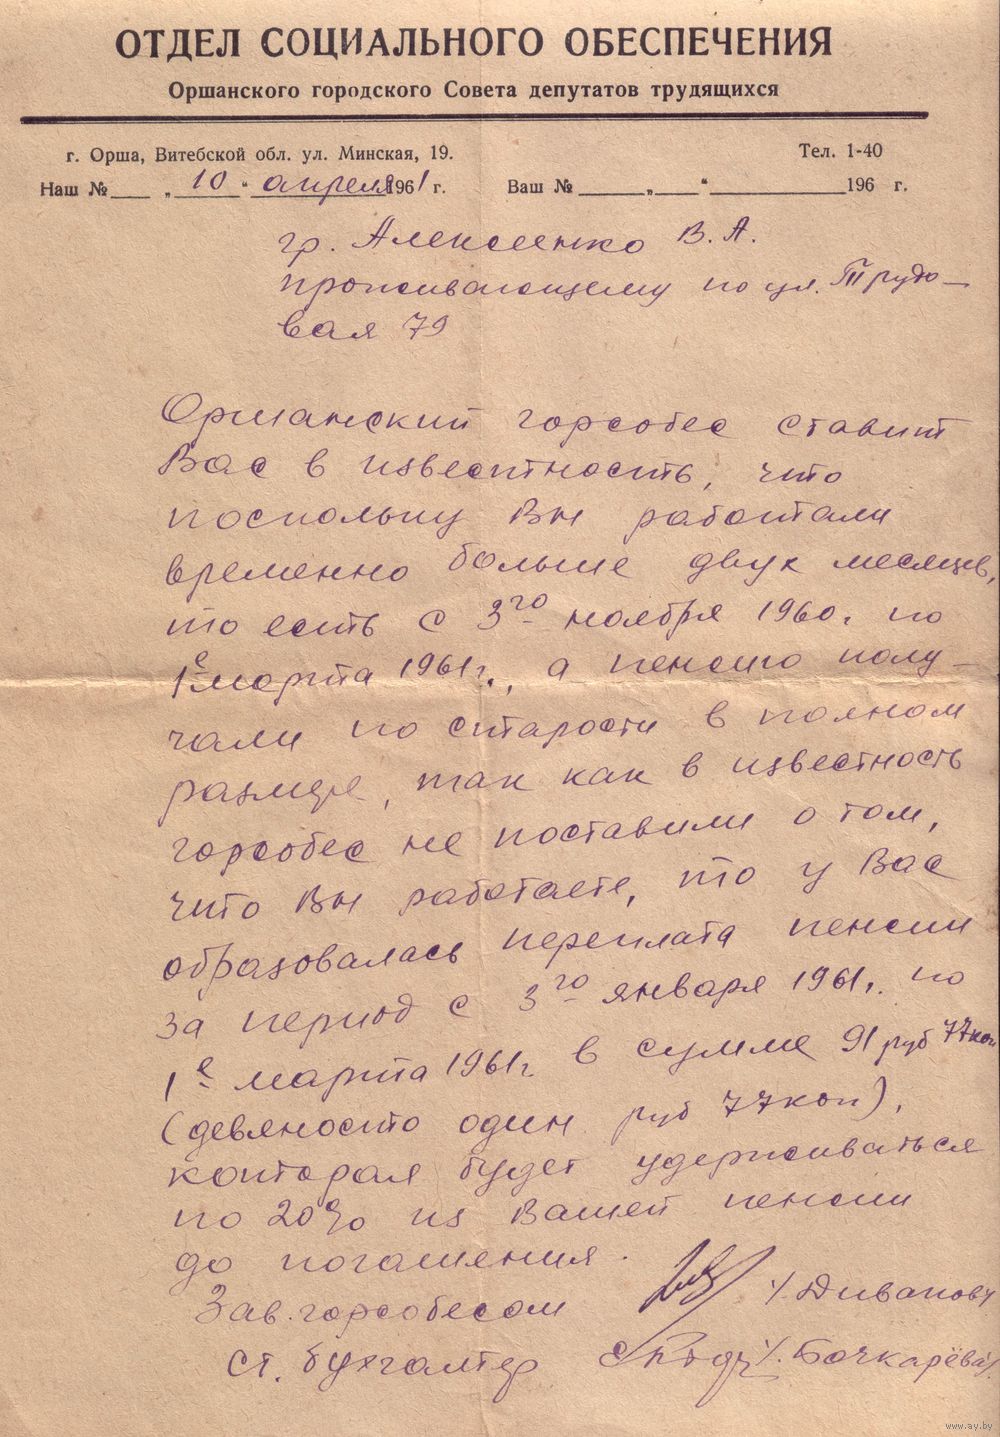 ОТДЕЛ СОЦИАЛЬНОГО ОБЕСПЕЧЕНИЯ
Оршанского городского Совета депутатов трудящихся
г. Орша, Витебской обл. ул. Минская, 19.
Тел. 1-40
Наш № ____ „ 10 “ апреля 1961 г.
Ваш № ______ „____“ ____________ 196 г.
гр. Алексеенко В. А.
проживающему по ул. Трудо-
вая 79
Оршанский горсобес ставит
Вас в известность, что
поскольку Вы работали
временно больше двух месяцев,
то есть с 3го ноября 1960г. по
1е марта 1961г., а пенсию полу-
чали по старости в полном
размере, так как в известность
горсобес не поставили о том,
что Вы работаете, то у Вас
образовалась переплата пенсии
за период с 3го января 1961г. по
1е марта 1961г. в сумме 91 руб 77коп
(девяносто один руб 77коп),
которая будет удерживаться
по 20% из Вашей пенсии
до погашения.
Зав. горсобесом /Дивакову
ст. бухгалтер /. Бочкарёва/.
www.ay.by